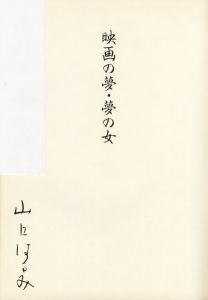 映画の夢・夢の女
山口はるみ